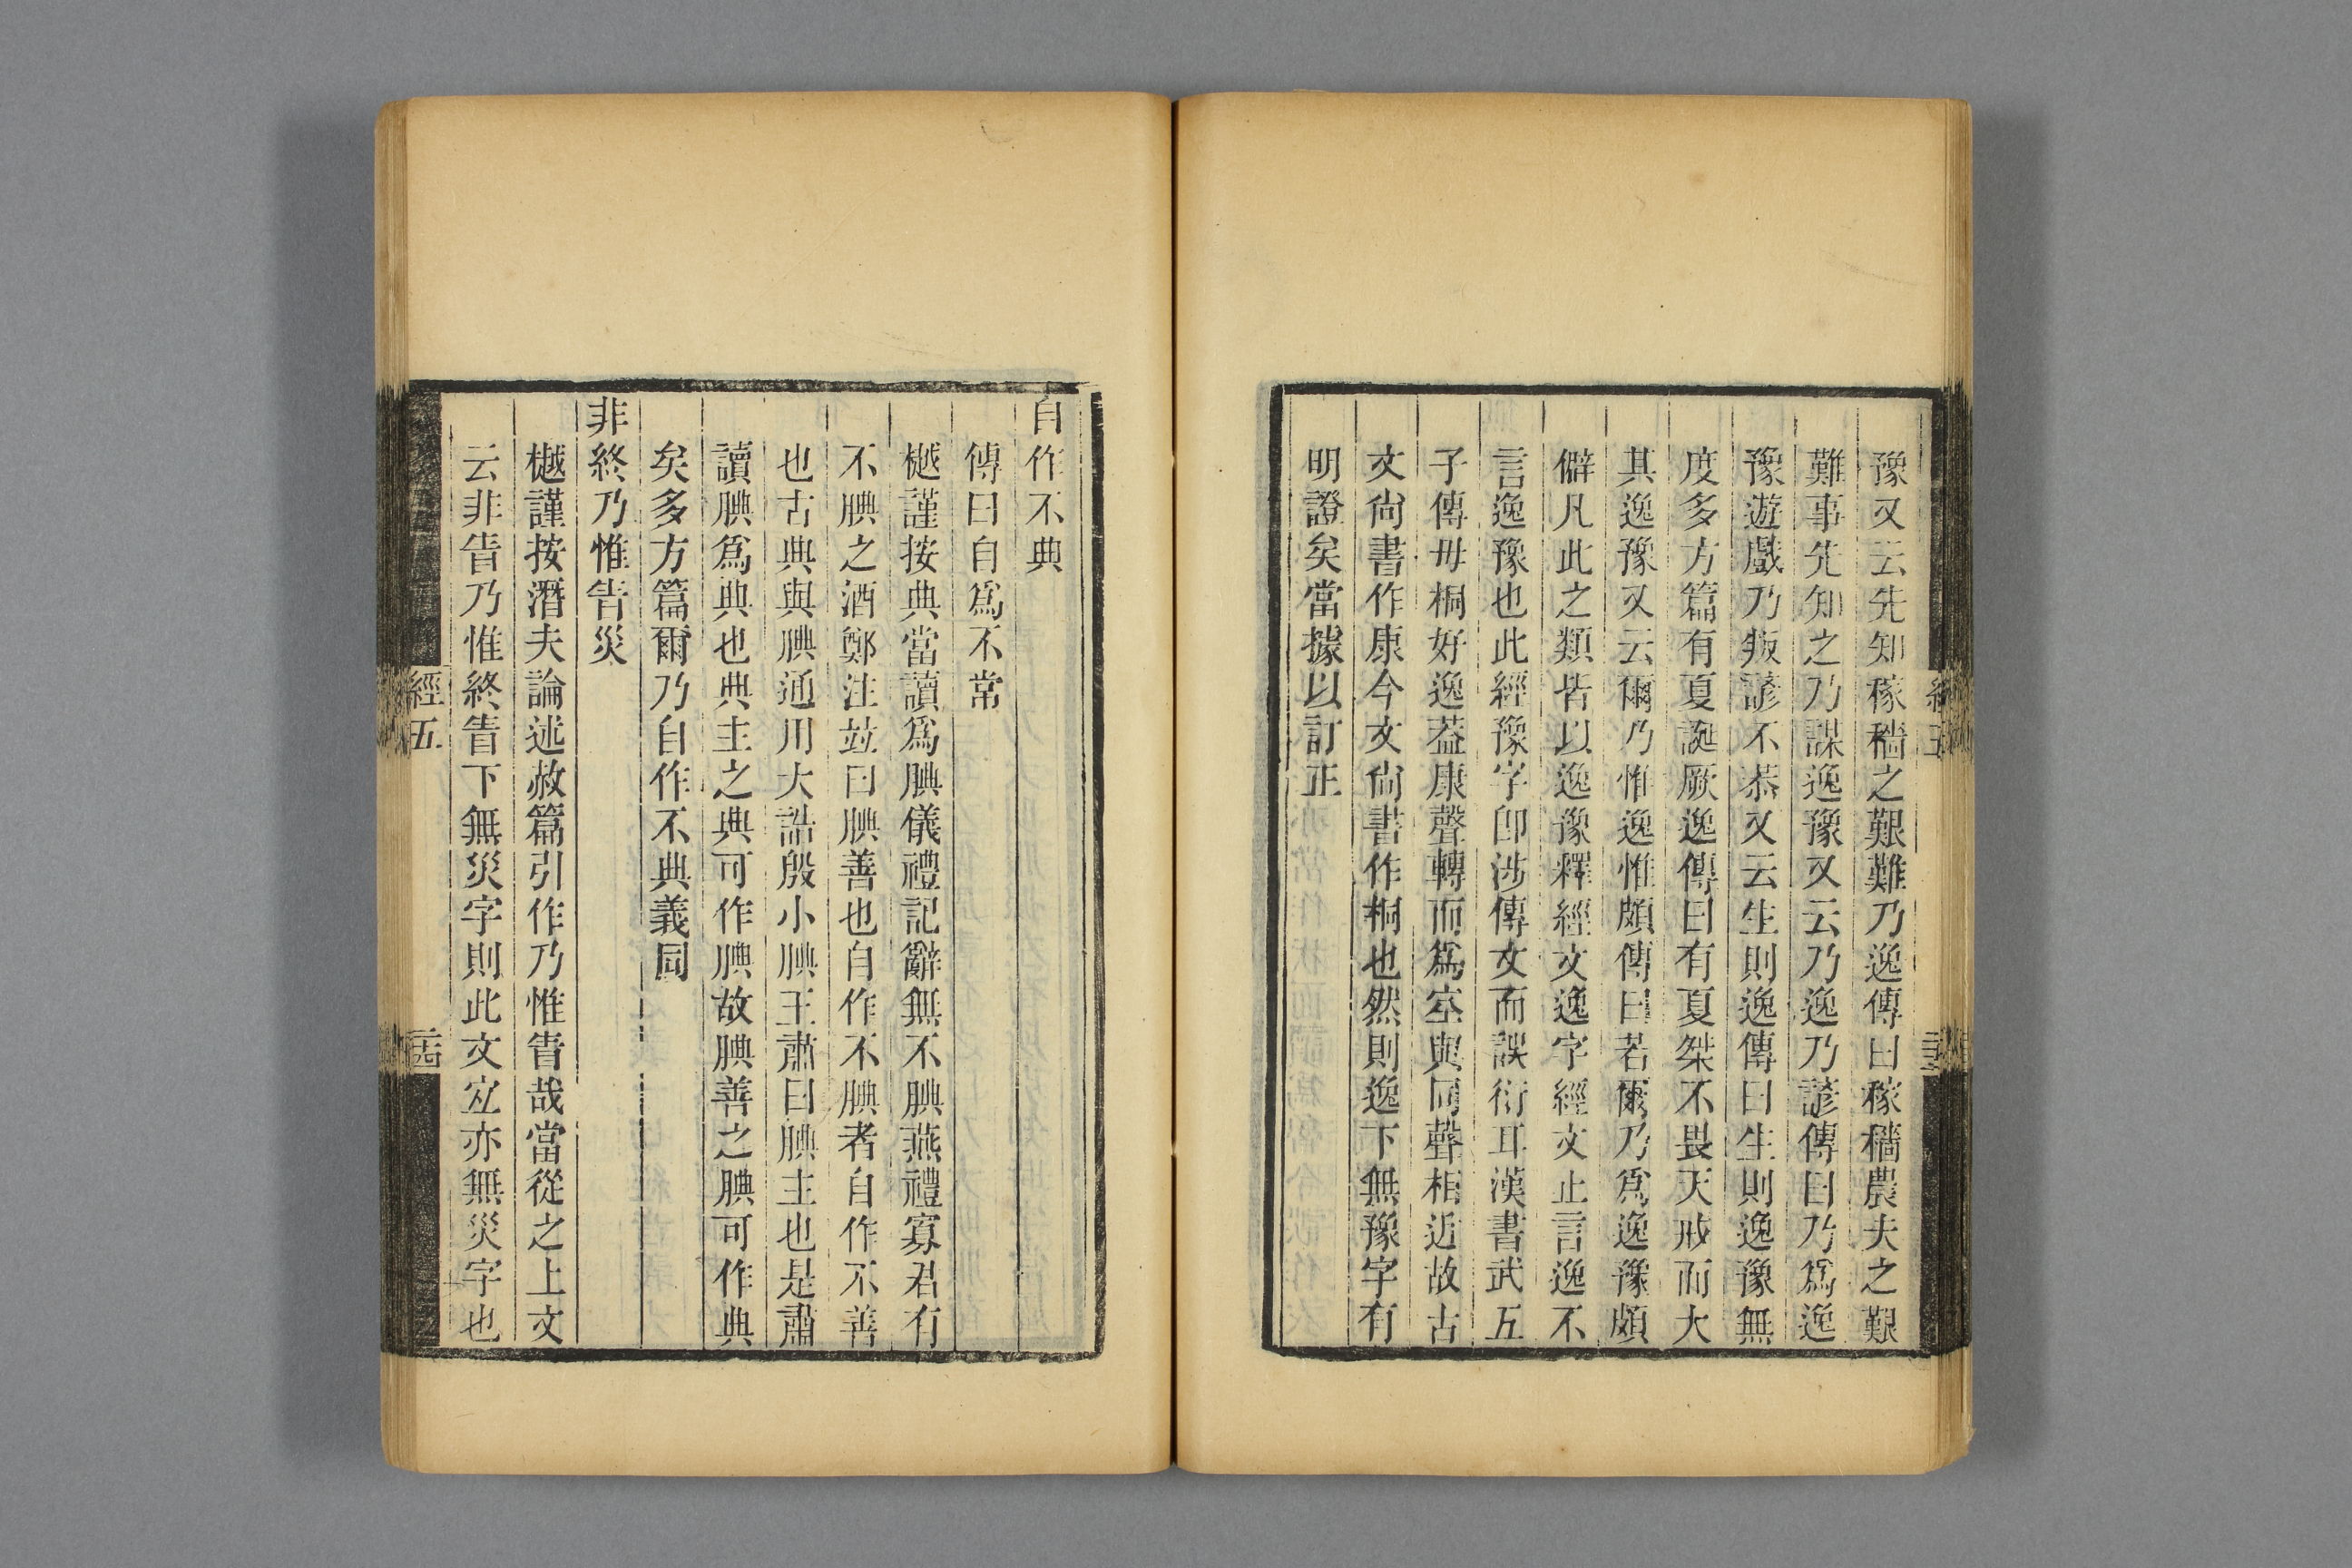 豫又云先知稼穡之艱難乃逸傳曰稼穡農夫之艱
難事先知之乃謀逸豫又云乃逸乃諺傳曰乃爲逸
豫遊戲乃叛諺不恭又云生則逸傳曰生則逸豫無
度多方篇有夏誕厥逸傳曰有夏桀不畏天戒而大
其逸豫又云爾乃惟逸惟頗傳曰若爾乃爲逸豫頗
僻凡此之類皆以逸豫釋經文逸字經文止言逸不
言逸豫也此經豫字卽涉傳文而誤衍耳漢書武五
子傳毋桐好逸葢康聲轉而爲空與同聲相近故古
文尙書作康今文尙書作桐也然則逸下無豫字有
明證矣當據以訂正
自作不典
傳曰自爲不常
樾謹按典當讀爲腆儀禮記辭無不腆燕禮寡君有
不腆之酒鄭注竝曰腆善也自作不腆者自作不善
也古典與腆通用大誥殷小腆王肅曰腆主也是肅
讀腆爲典也典主之典可作腆故腆善之腆可作典
矣多方篇爾乃自作不典義同
非終乃惟眚災
樾謹按潛夫論述赦篇引作乃惟眚哉當從之上文
云非眚乃惟終眚下無災字則此文宐亦無災字也
經五
二十四